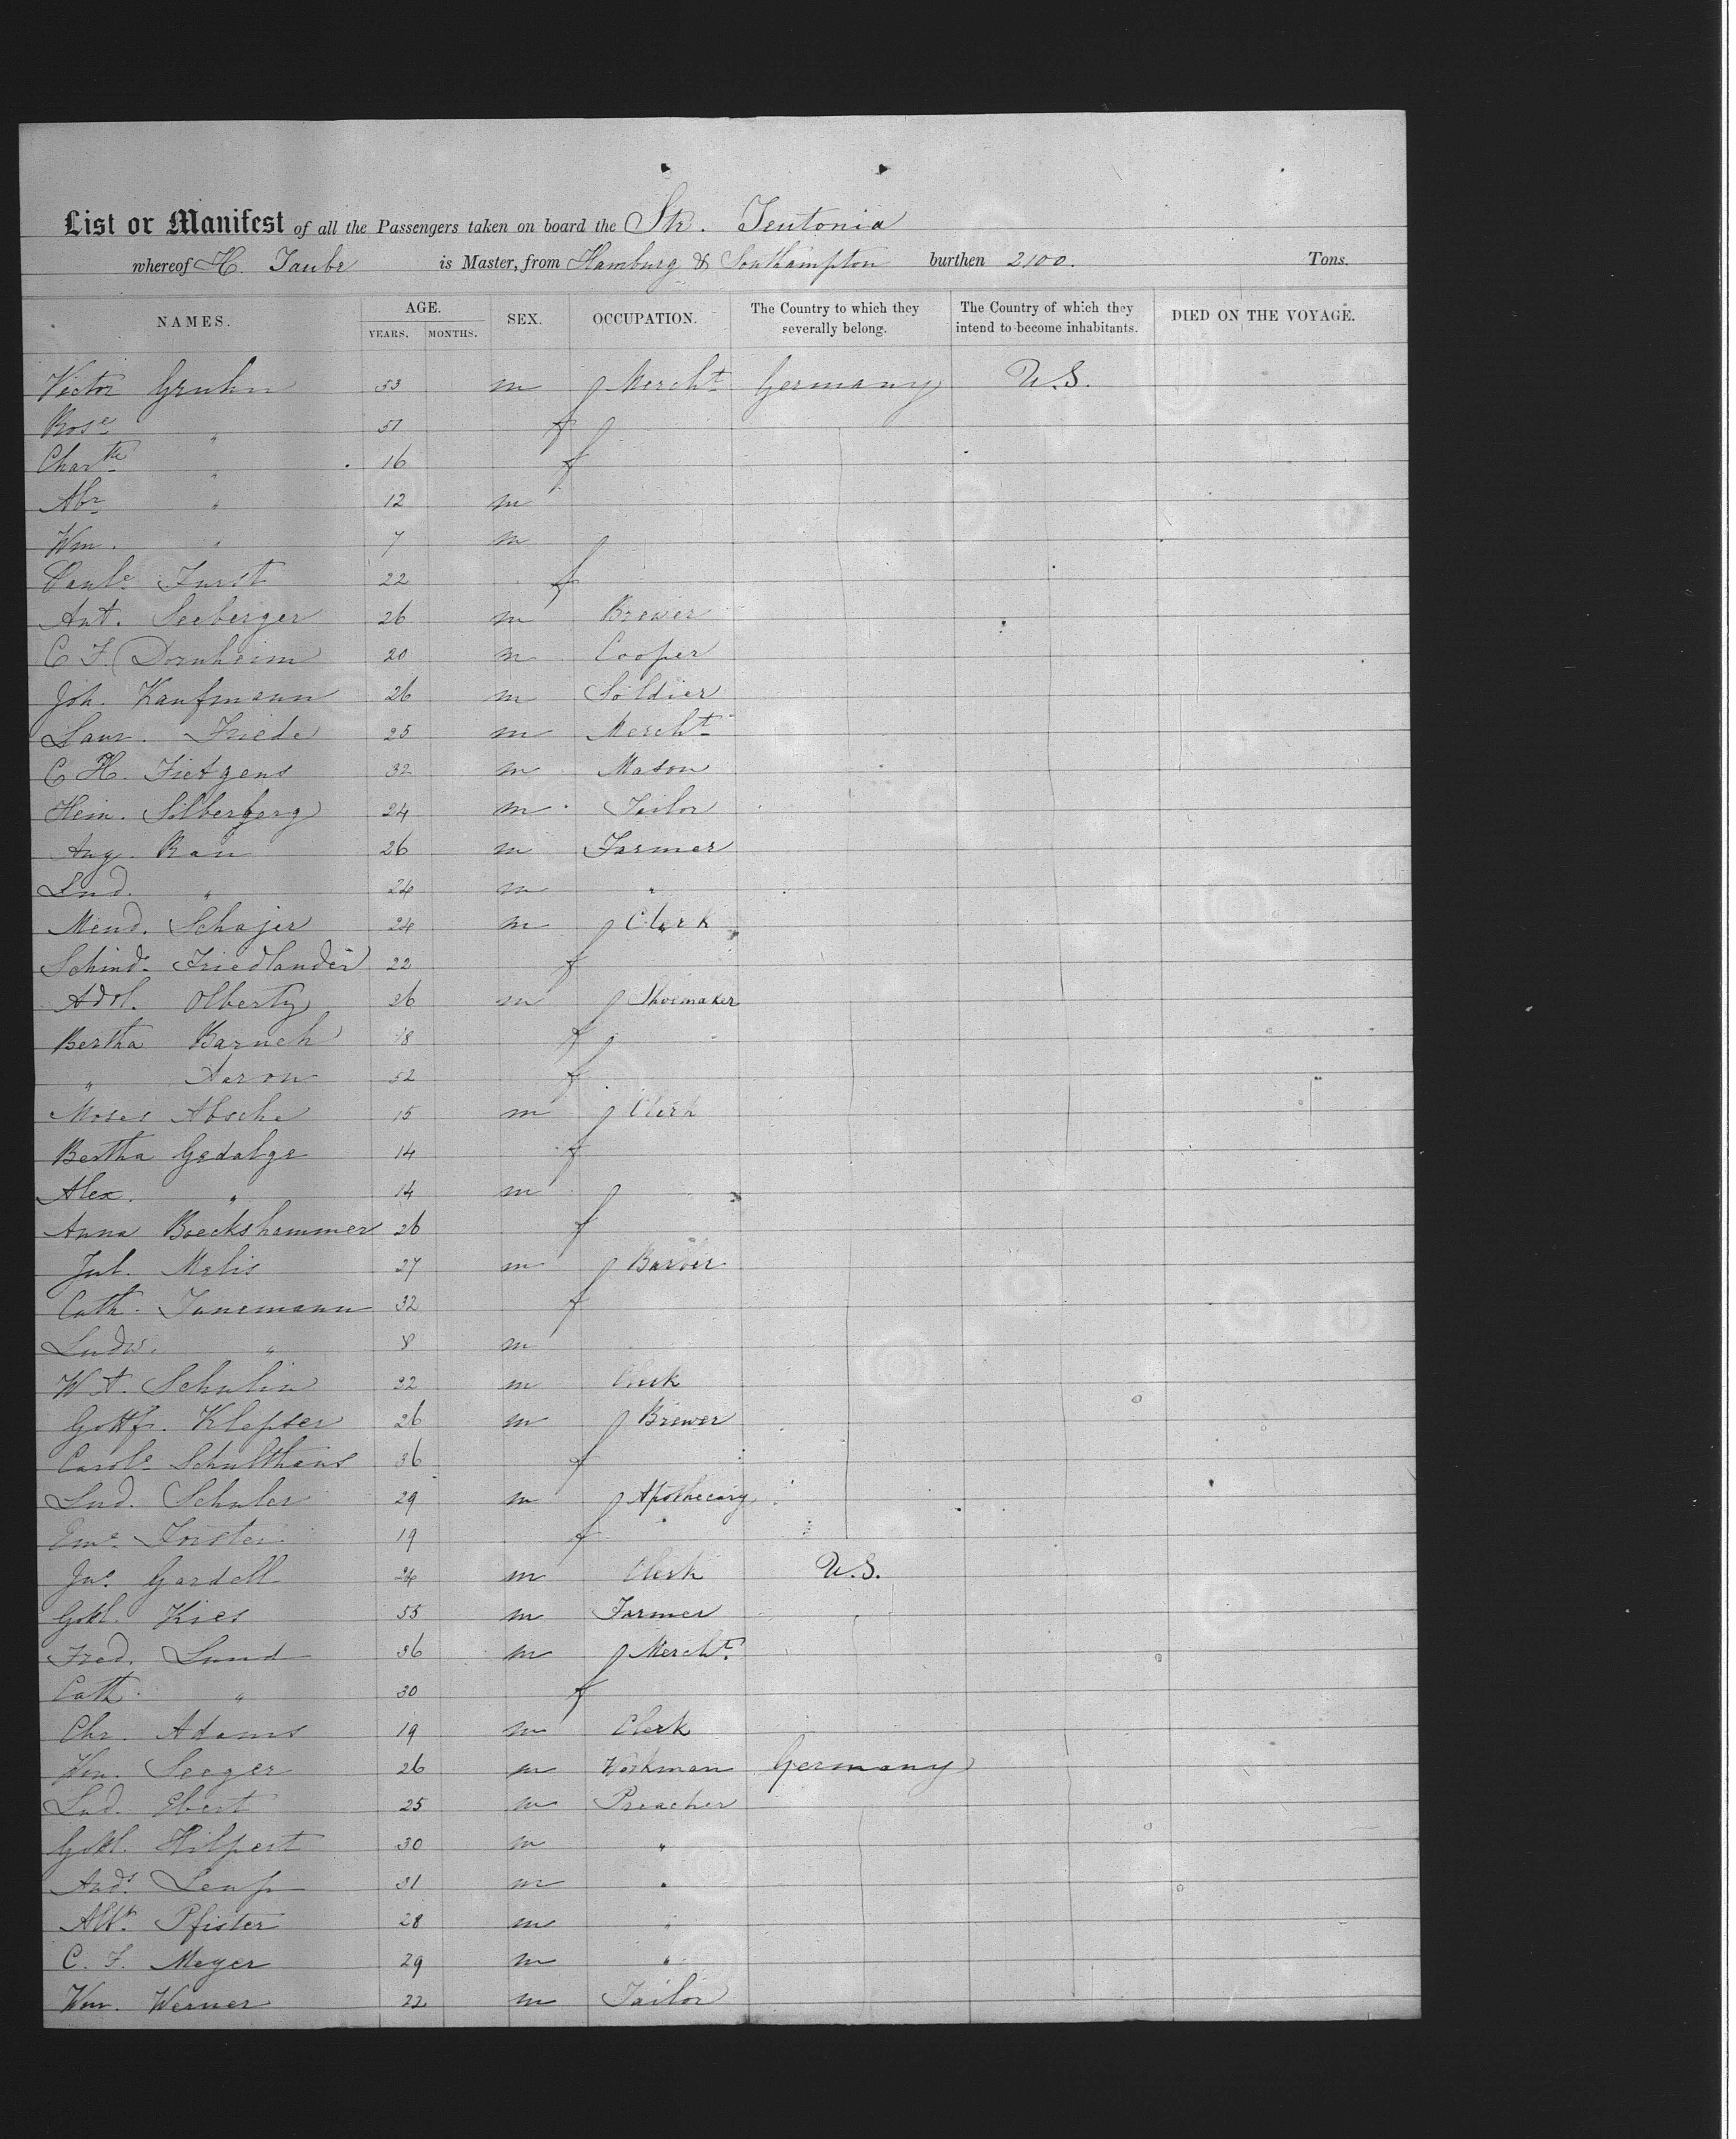 List or Manifest of all the Passengers taken on board the Str. Teutonia
whereof H. Taube is Master, from Hamburg & Southampton burthen 2100. Tons.
NAMES. AGE. YEARS. MONTHS. SEX. OCCUPATION. The Country to which they severally belong. The Country of which they intend to become inhabitants. DIED ON THE VOYAGE.
Victor Gruhn 53 m Mercht Germany U.S.
Rose " 51 f
Chartte " 16 f
Abr " 12 m
Wm. " 7 m
Paule Furst 22 f
Ant. Seeberger 26 m Brewer
C F. Dornheim 20 m Cooper
Joh. Kaufmann 26 m Soldier
Laur. Friede 25 m Mercht
C H. Fietgens 32 m Mason
Hein. Silberberg 24 m Tailor
Aug. Rau 26 m Farmer
Lud. " 24 m "
Mend. Schajer 24 m Clerk
Schinde Friedlander 22 f
Adol. Olberty 26 m Shoemaker
Bertha Baruch 18 f
" Aaron 52 f
Moses Absche 15 m Clerk
Bertha Gedalge 14 f
Alex. " 14 m
Anna Boeckshammer 26 f
Jul. Melis 27 m Barber
Cath. Junemann 32 f
Ludw. " 8 m
W A. Schulin 32 m Clerk
Gottf. Klepser 26 m Brewer
Carole Schultheis 36 f
Lud. Schuler 29 m Apothecary
Eme Forster 19 f
Jno. Gardell 24 m Clerk U.S.
Gottl. Kies 55 m Farmer
Fred. Lund 36 m Mercht
Cath. " 30 f
Chr. Adams 19 m Clerk
Wm. Seeger 26 m Workman Germany
Lud. Ebert 25 m Preacher
Gottl. Hilpert 30 m "
Ands. Lenp 31 m "
Albt. Pfister 28 m "
C. F. Meyer 29 m "
Wm. Werner 22 m Tailor